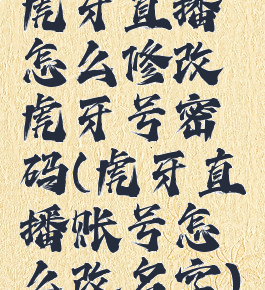 虎牙直播
怎么修改
虎牙号密
码(虎牙直
播账号怎
么改名字)